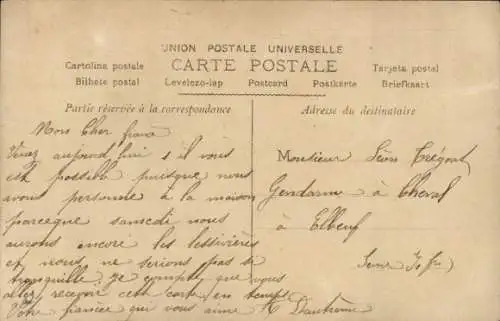 UNION POSTALE UNIVERSELLE
CARTE POSTALE
Cartolina postale
Tarjeta postal
Bilhete postal
Levelezo-lap
Postcard
Postkarte
Briefkaart
Partie réservée à la correspondance
Mons Cher
Venez aujourd hui s il vous
est possible puisque nous
avons personne à la maison
parceque samedi nous
aurons encore les lessivières
et nous ne serions pas si
tranquille je compte que vous
allez recevoir cette carte en temps
Votre fiancée qui vous aime
Adresse du destinataire
Monsieur Léons
Gendarme à Cheval
à Elbeuf
Seine